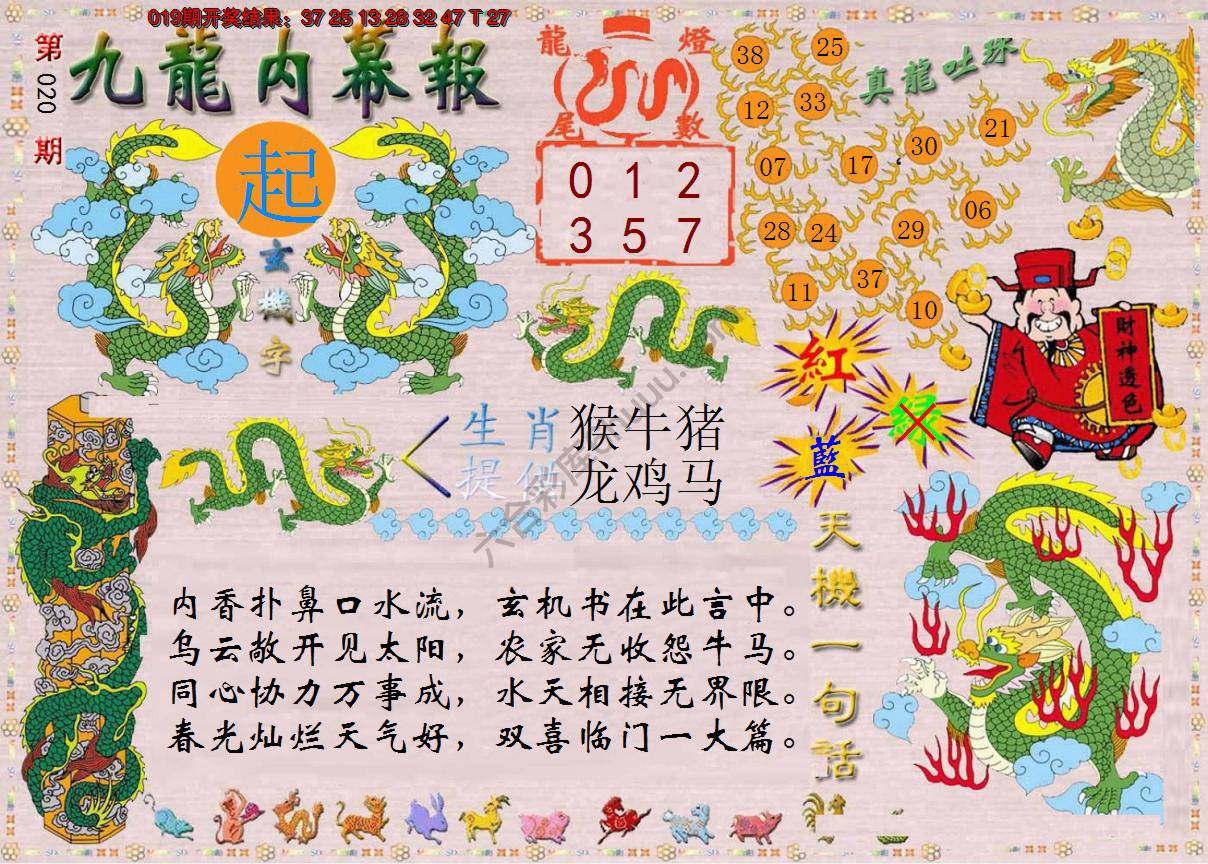 019期开奖结果：37 25 13 28 32 47 T 27
第020期
九龍内幕報
起
玄機字
龍燈
尾數
0 1 2
3 5 7
真龍吐珠
38 25
12 33
07 17 30 21
28 24 29 06
11 37 10
財神透色
紅
绿
藍
生肖 猴牛猪
提供 龙鸡马
天機一句話
内香扑鼻口水流，玄机书在此言中。
乌云敞开见太阳，农家无收怨牛马。
同心协力万事成，水天相接无界限。
春光灿烂天气好，双喜临门一大篇。